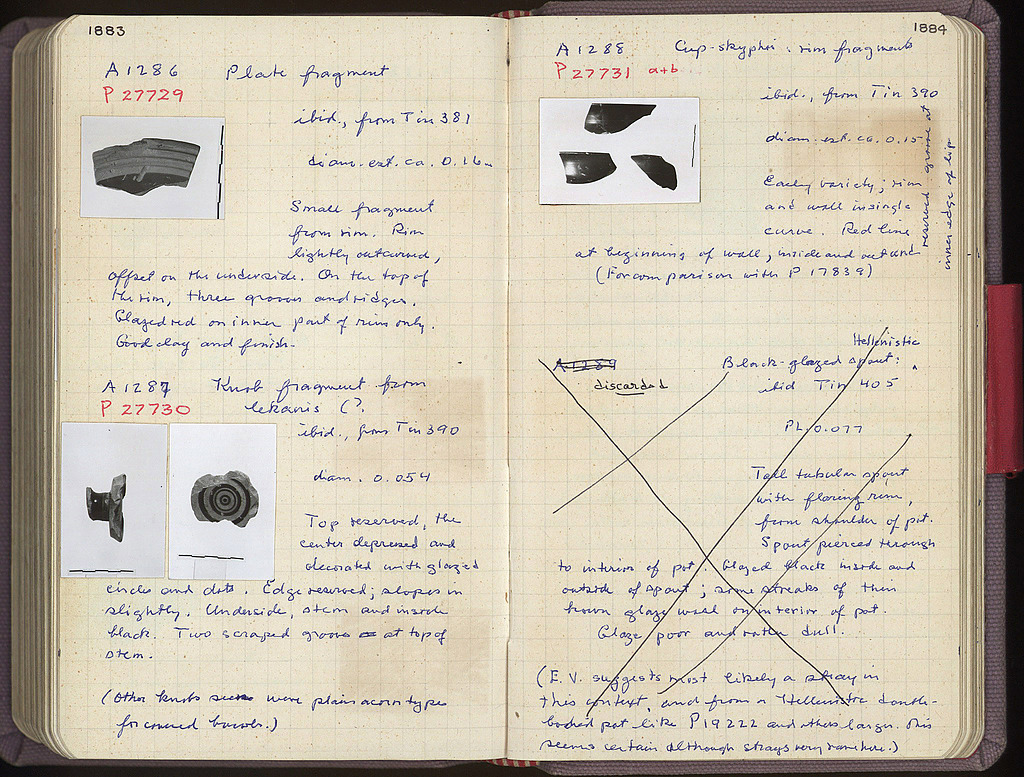 1883
A 1286 Plate fragment
P 27729
ibid., from Tin 381
diam. est. ca. 0.16
Small fragment
from rim. Rim
lightly outcurved,
offset on the underside. On the top of
the rim, three grooves and ridges.
Glazed red on inner part of rim only.
Good clay and finish.
A 1287 Knob fragment from
P 27730 lekanis (?.
ibid., from Tin 390
diam. 0.054
Top reserved, the
center depressed and
decorated with glazed
circles and dots. Edge reserved; slopes in
slightly. Underside, stem and inside
black. Two scraped grooves at top of
stem.
(Other knobs were plain acorn types
for covered bowls.)
1884
A 1288 Cup-skyphoi: rim fragments
P 27731 a+b
ibid., from Tin 390
diam. est. ca. 0.15
Early variety; rim
and wall in single
curve. Red line
at beginning of wall, inside and out and
reserved groove at
inner edge of lip
(For comparison with P 17839)
Hellenistic
A 1289 Black-glazed spout:
discarded ibid Tin 405
PL. 0.077
Tall tubular spout
with flaring rim,
from shoulder of pot.
Spout pierced through
to interior of pot. Glazed black inside and
outside of spout; some streaks of thin
brown glaze wash on interior of pot.
Glaze poor and rather dull.
(E.V. suggests most likely a stray in
this context, and from a Hellenistic double-
bodied pot like P 19222 and others larger. This
seems certain although strays very rare here.)